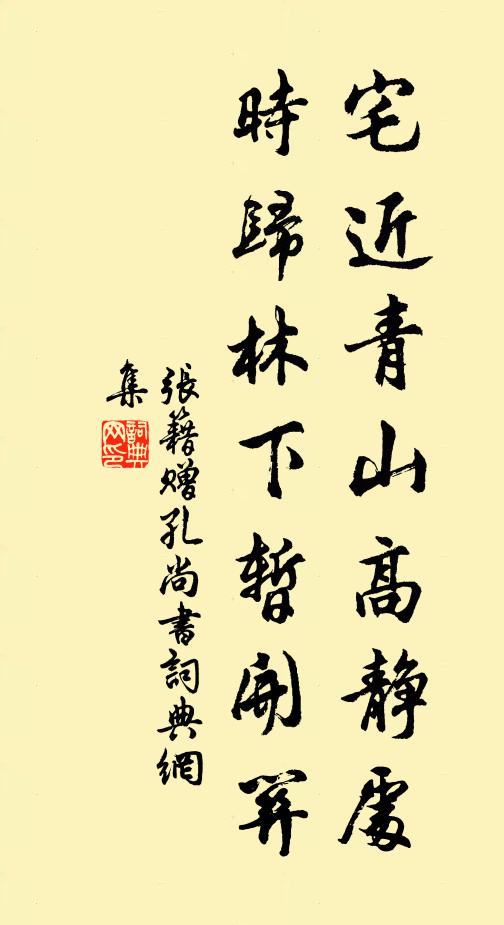 宅近青山高静處
時歸林下暫開關
張籍贈孔尚書詞典網
集
詞典网印